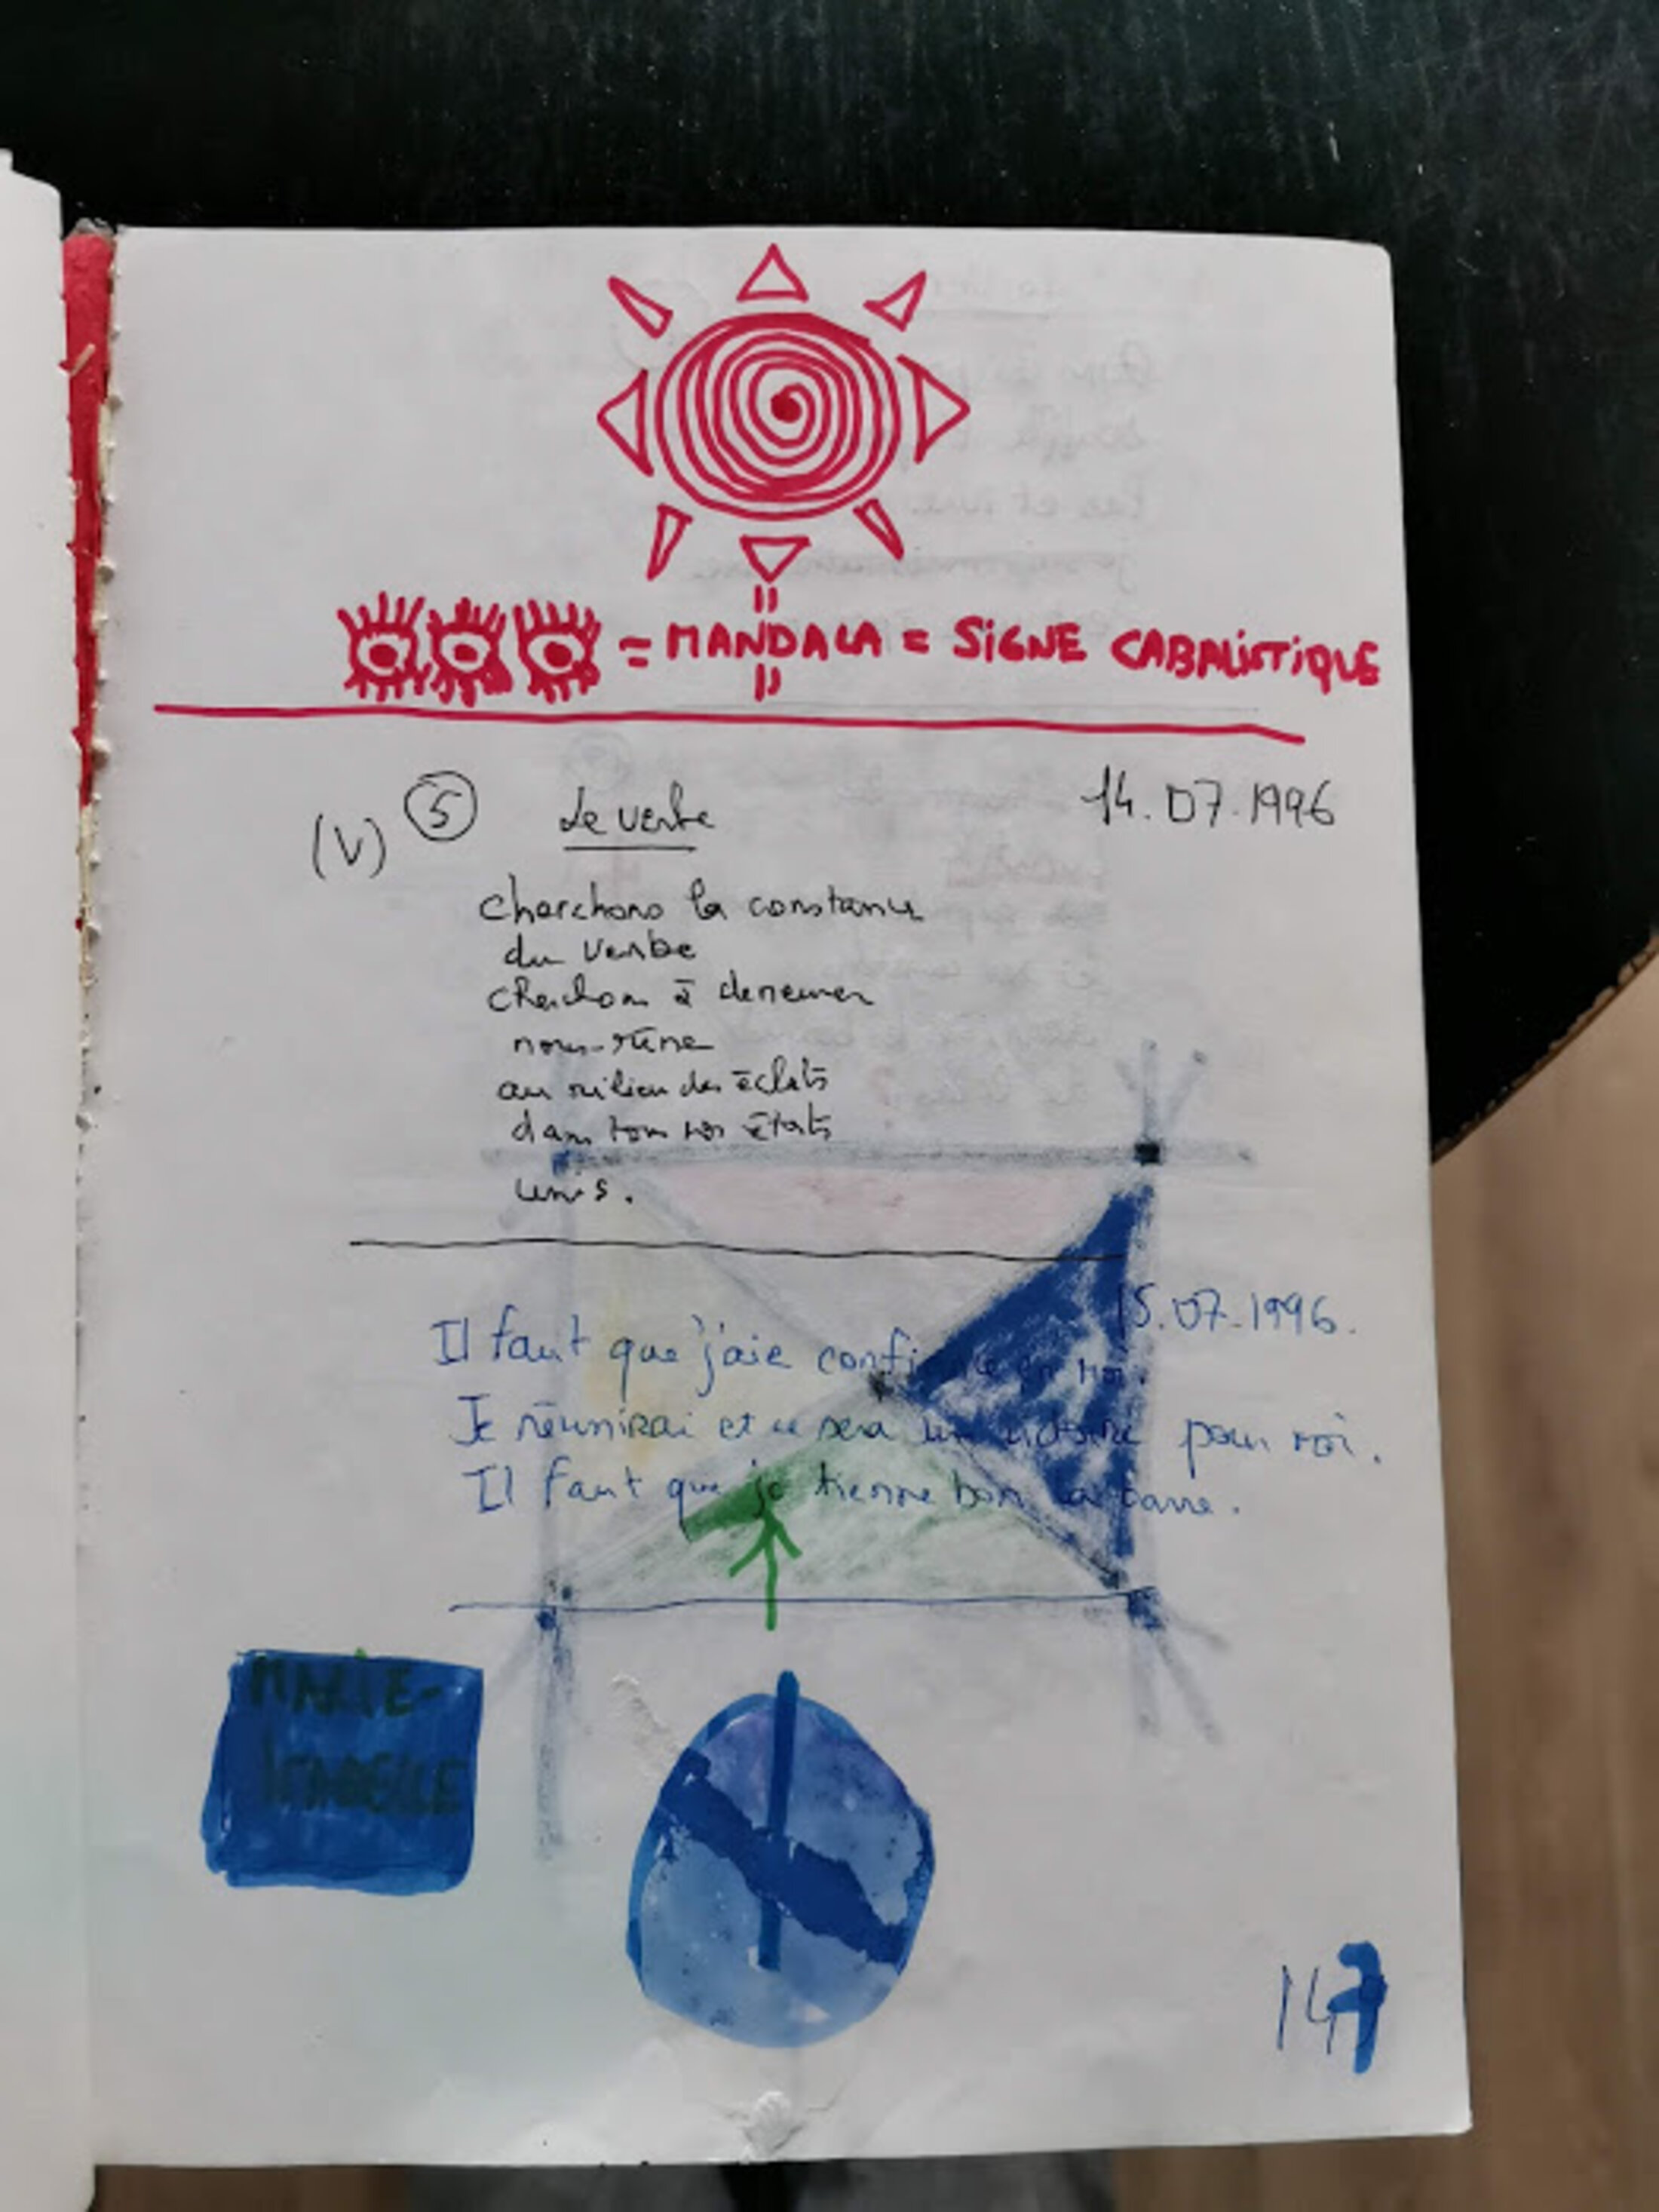 = MANDALA = SIGNE CABALISTIQUE
(V) 5 Le verbe 14.07.1996
cherchons la constance
du verbe
cherchons à demeurer
nous-même
au milieu des éclats
dans tous nos états
unis.
15.07.1996.
Il faut que j'aie confiance en moi.
Je réunirai et ce sera une victoire pour moi.
Il faut que je tienne bon la barre.
MARIE-
ISABELLE
147